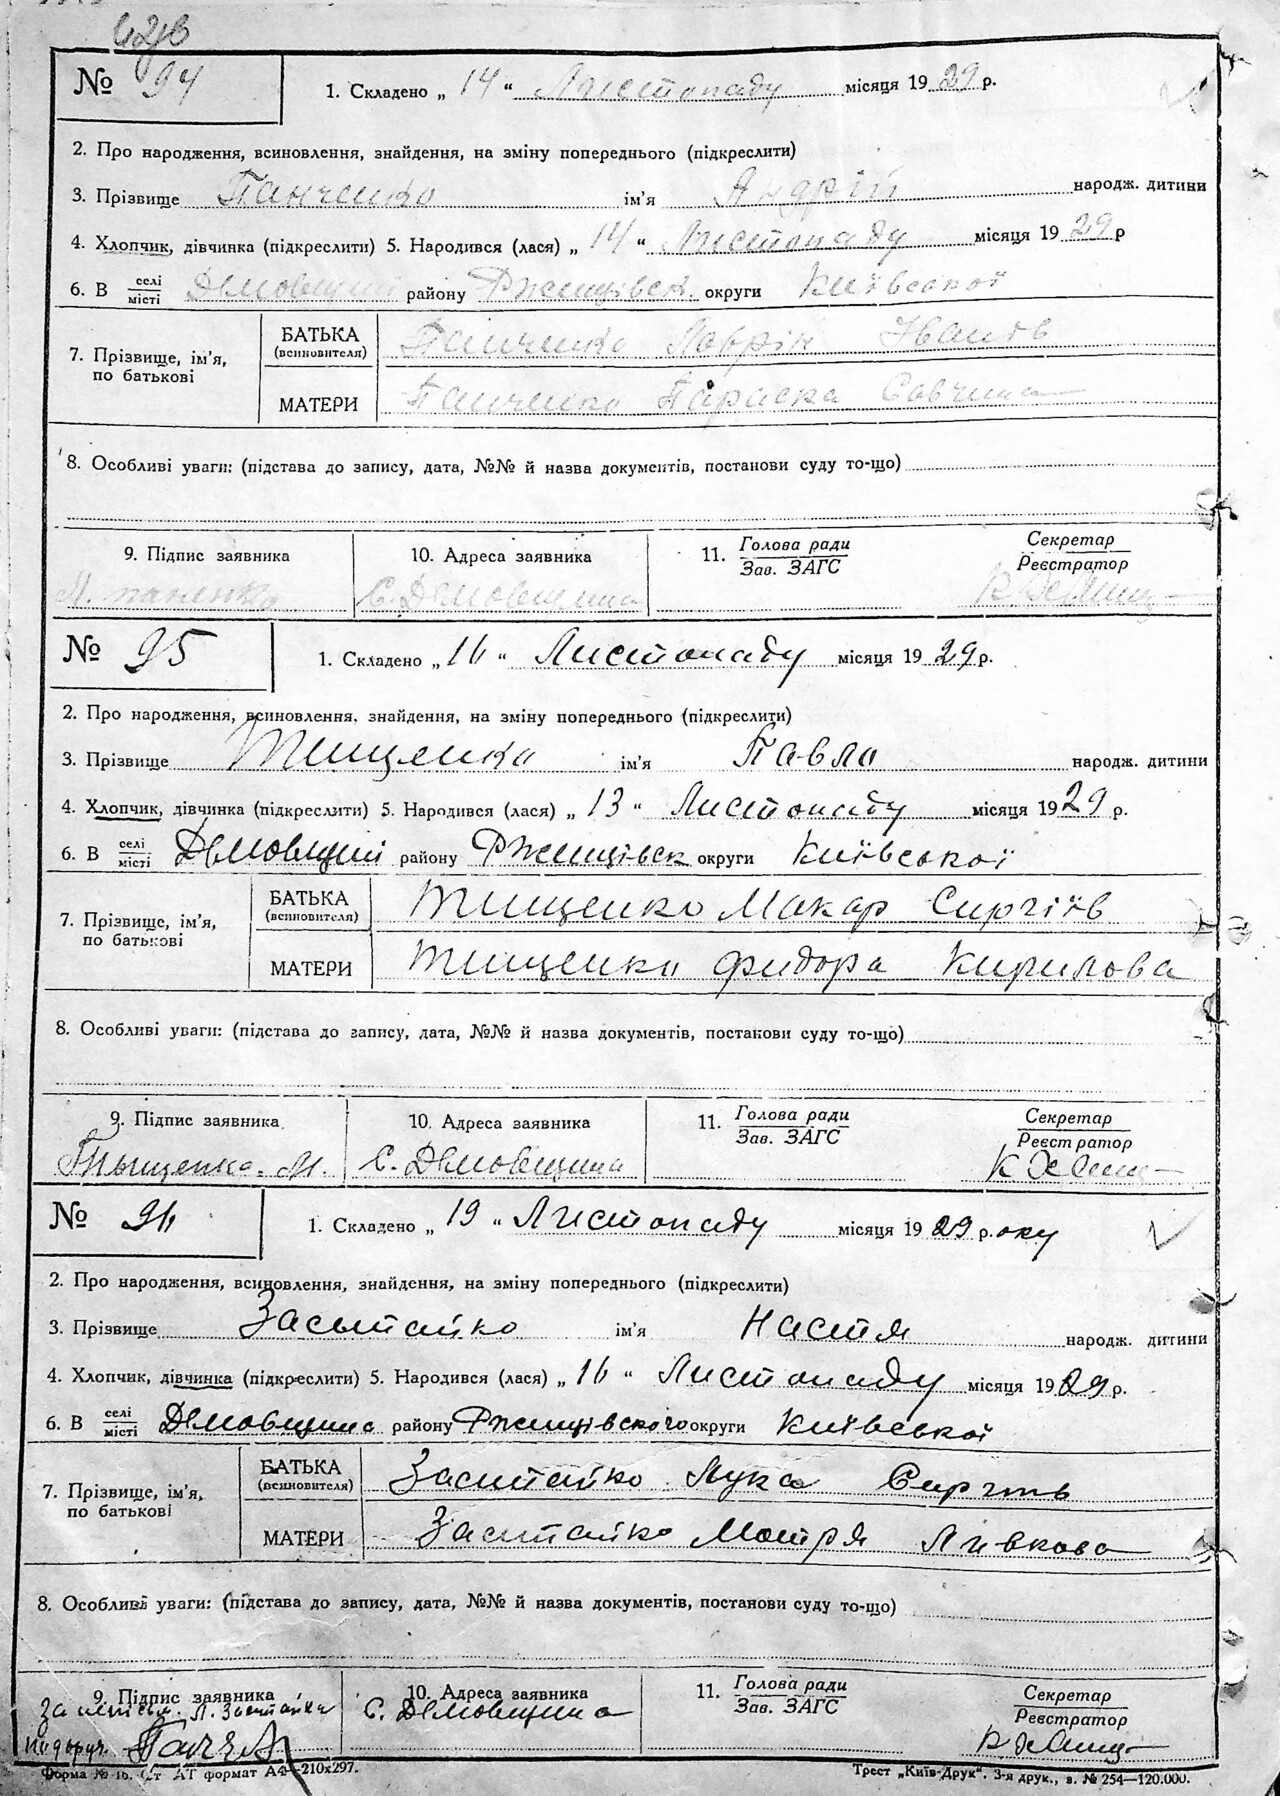 № 94
1. Складено „ 14 “ Листопаду місяця 1929 р.
2. Про народження, всиновлення, знайдення, на зміну попереднього (підкреслити)
3. Прізвище Панченко ім’я Андрій народж. дитини
4. Хлопчик, дівчинка (підкреслити) 5. Народився (лася) „ 14 “ Листопаду місяця 1929 р
6. В селі місті району Ржищівськ. округи Київської
7. Прізвище, ім’я, по батькові
БАТЬКА (всиновителя) Панченко Лаврін Іванів
МАТЕРИ Панченко Параска Савчина
8. Особливі уваги: (підстава до запису, дата, №№ й назва документів, постанови суду то-що)
9. Підпис заявника 10. Адреса заявника 11. Голова ради Зав. ЗАГС Секретар Реєстратор
С. Демовщина
№ 95
1. Складено „ 16 “ Листопаду місяця 1929 р.
2. Про народження, всиновлення, знайдення, на зміну попереднього (підкреслити)
3. Прізвище Тищенко ім’я Павло народж. дитини
4. Хлопчик, дівчинка (підкреслити) 5. Народився (лася) „ 13 “ Листопаду місяця 1929 р.
6. В селі місті району Ржищівськ округи Київської
7. Прізвище, ім’я, по батькові
БАТЬКА (всиновителя) Тищенко Макар Сиргіїв
МАТЕРИ Тищенко Фидора Кирилова
8. Особливі уваги: (підстава до запису, дата, №№ й назва документів, постанови суду то-що)
9. Підпис заявника 10. Адреса заявника 11. Голова ради Зав. ЗАГС Секретар Реєстратор
Тыщенко. М. С. Демовщина
№ 96
1. Складено „ 19 “ Листопаду місяця 1929 р. оку
2. Про народження, всиновлення, знайдення, на зміну попереднього (підкреслити)
3. Прізвище ім’я Настя народж. дитини
4. Хлопчик, дівчинка (підкреслити) 5. Народився (лася) „ 16 “ Листопаду місяця 1929 р.
6. В селі місті Демовщина району Ржищівского округи Київської
7. Прізвище, ім’я, по батькові
БАТЬКА (всиновителя) Заситайко Лука
МАТЕРИ Заситайко Мотря Ливкова
8. Особливі уваги: (підстава до запису, дата, №№ й назва документів, постанови суду то-що)
9. Підпис заявника 10. Адреса заявника 11. Голова ради Зав. ЗАГС Секретар Реєстратор
С. Демовщина
Форма № 16. Ст АТ формат А4—210x297.
Трест „Київ-Друк“. 3-я друк., з. № 254—120.000.